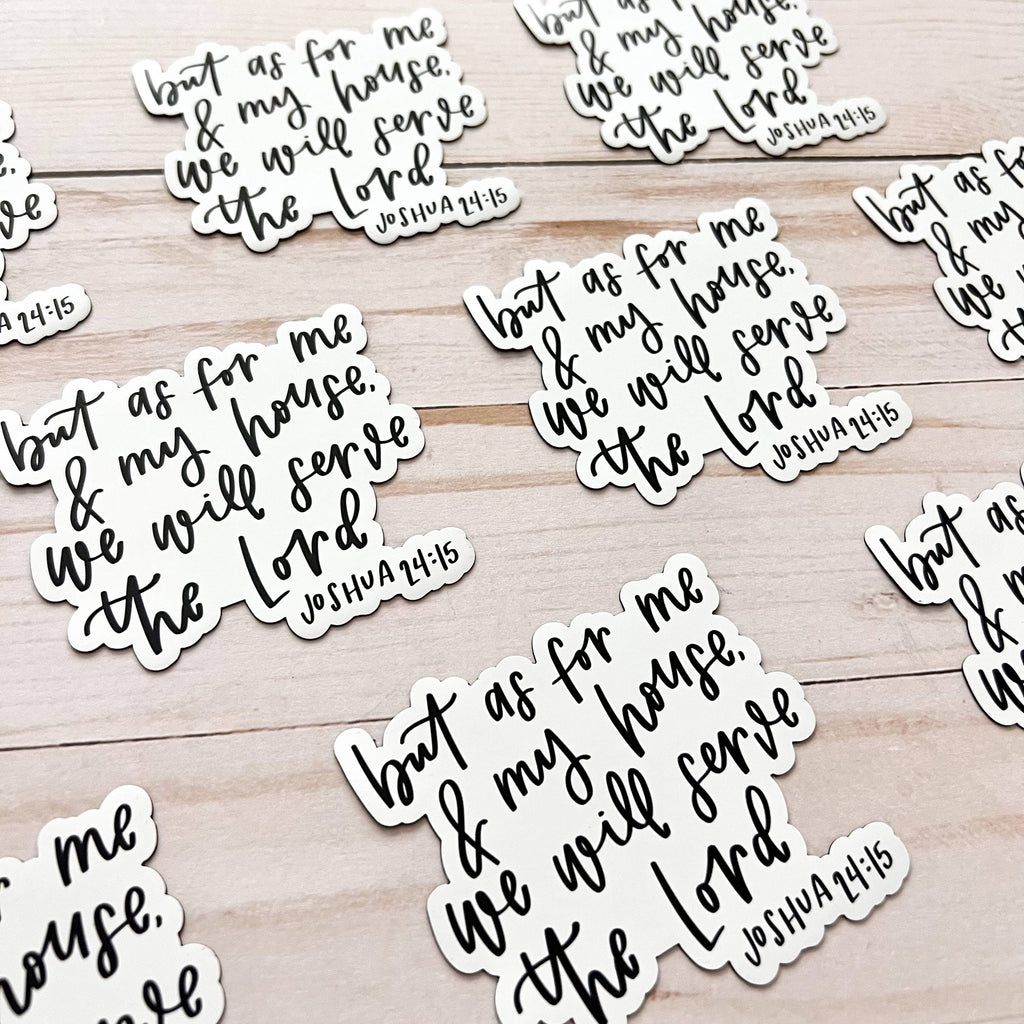 but as for me
& my house,
we will serve
the Lord
JOSHUA 24:15
but as for me
& my house,
we will serve
the Lord
JOSHUA 24:15
but as for
& my
we
but as for me
& my house,
we will serve
the Lord
JOSHUA 24:15
24:15
but as for me
& my house,
we will serve
the Lord
JOSHUA 24:15
but as
&
we
but as for me
& my house,
we will serve
the Lord
JOSHUA 24:15
me
house,